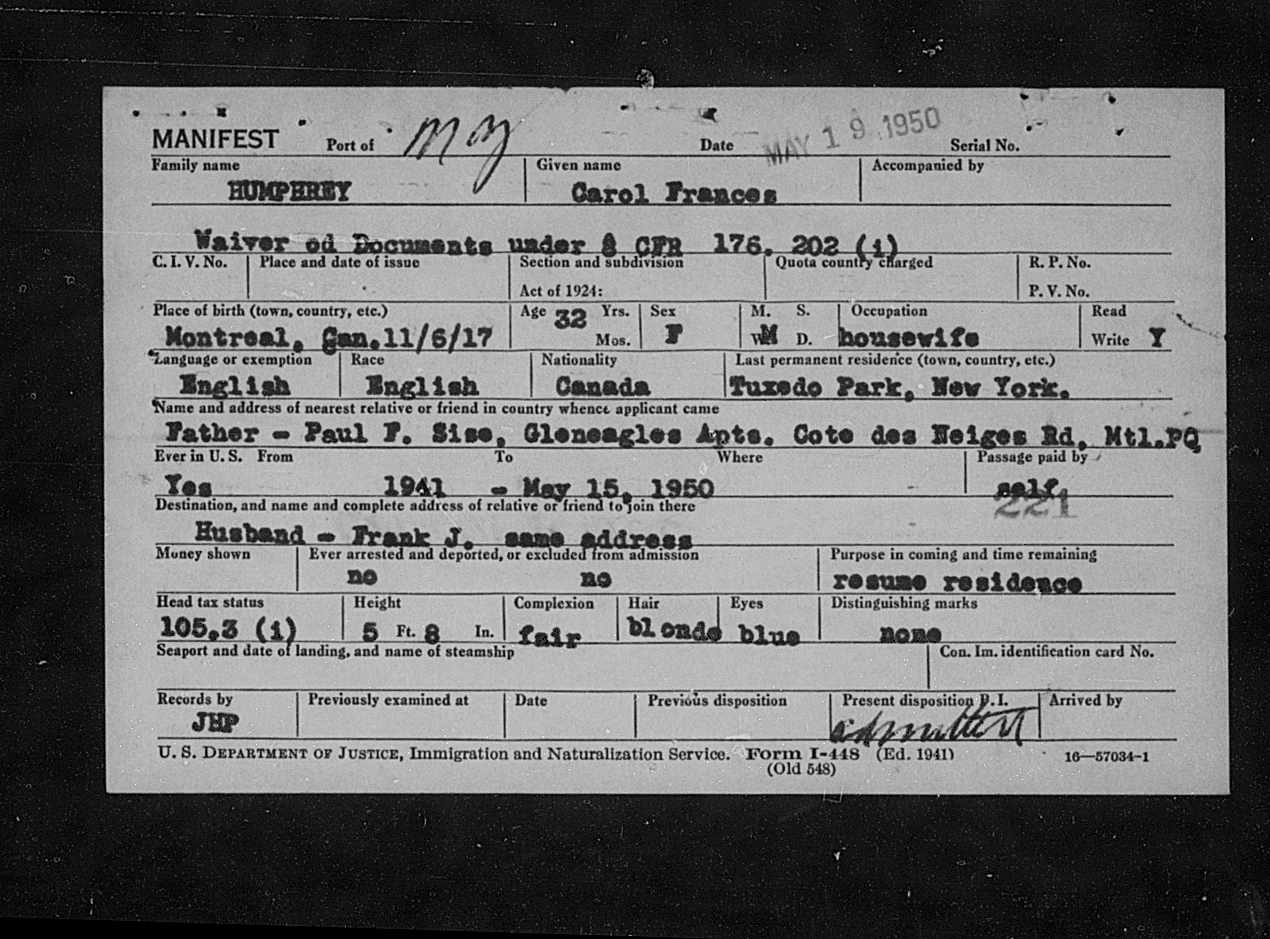 MANIFEST Port of Date MAY 19 1950 Serial No.
Family name Given name Accompanied by
HUMPHREY Carol Frances
Waiver od Documents under 8 CFR 176. 202 (i)
C. I. V. No. Place and date of issue Section and subdivision Quota country charged R. P. No.
Act of 1924: P. V. No.
Place of birth (town, country, etc.) Age 32 Yrs. Sex M. S. Occupation Read
Montreal, Can.11/6/17 Mos. F W M D. housewife Write Y
Language or exemption Race Nationality Last permanent residence (town, country, etc.)
English English Canada Tuxedo Park, New York.
Name and address of nearest relative or friend in country whence applicant came
Father - Paul F. Sise, Gleneagles Apts. Cote des Neiges Rd, Mtl.PQ
Ever in U. S. From To Where Passage paid by
Yes 1941 - May 15, 1950 self
221
Destination, and name and complete address of relative or friend to join there
Husband - Frank J. same address
Money shown Ever arrested and deported, or excluded from admission Purpose in coming and time remaining
no no resume residence
Head tax status Height Complexion Hair Eyes Distinguishing marks
105.3 (i) 5 Ft. 8 In. fair blonde blue none
Seaport and date of landing, and name of steamship Con. Im. identification card No.
Records by Previously examined at Date Previous disposition Present disposition P.I. Arrived by
JHP admitted
U. S. DEPARTMENT OF JUSTICE, Immigration and Naturalization Service. Form I-448 (Ed. 1941) 16—57034-1
(Old 548)